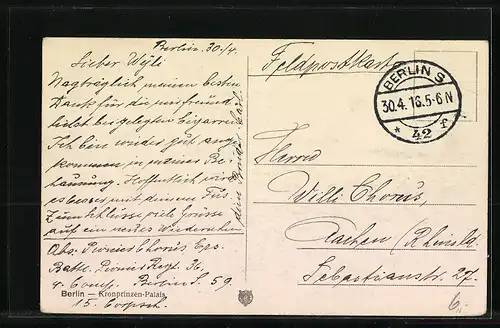 Berlin. 30./4.
Lieber Willi
Nagträglich meinen besten
Dank für die mir freund
lichst beigelegten Cigarren.
Ich bin wieder gut ange
kommen in meiner Be
hausung. Hoffentlich wird
es besser mit deinem Fus
Zum Schlüsse viele Grüsse
auf ein nettes Wiedersehen
dein
Abs. Pionier Chorus
Battl. Pionier Regt. 36
4 Comp. Berlin S. 59.
15. Corpsch.
Berlin — Kronprinzen-Palais
Feldpostkarte
BERLIN S
30.4.16.5-6N
* 42 f
Herrn
Willi Chorus,
Aachen (Rheinld.
Sebastianstr. 27.
6.-